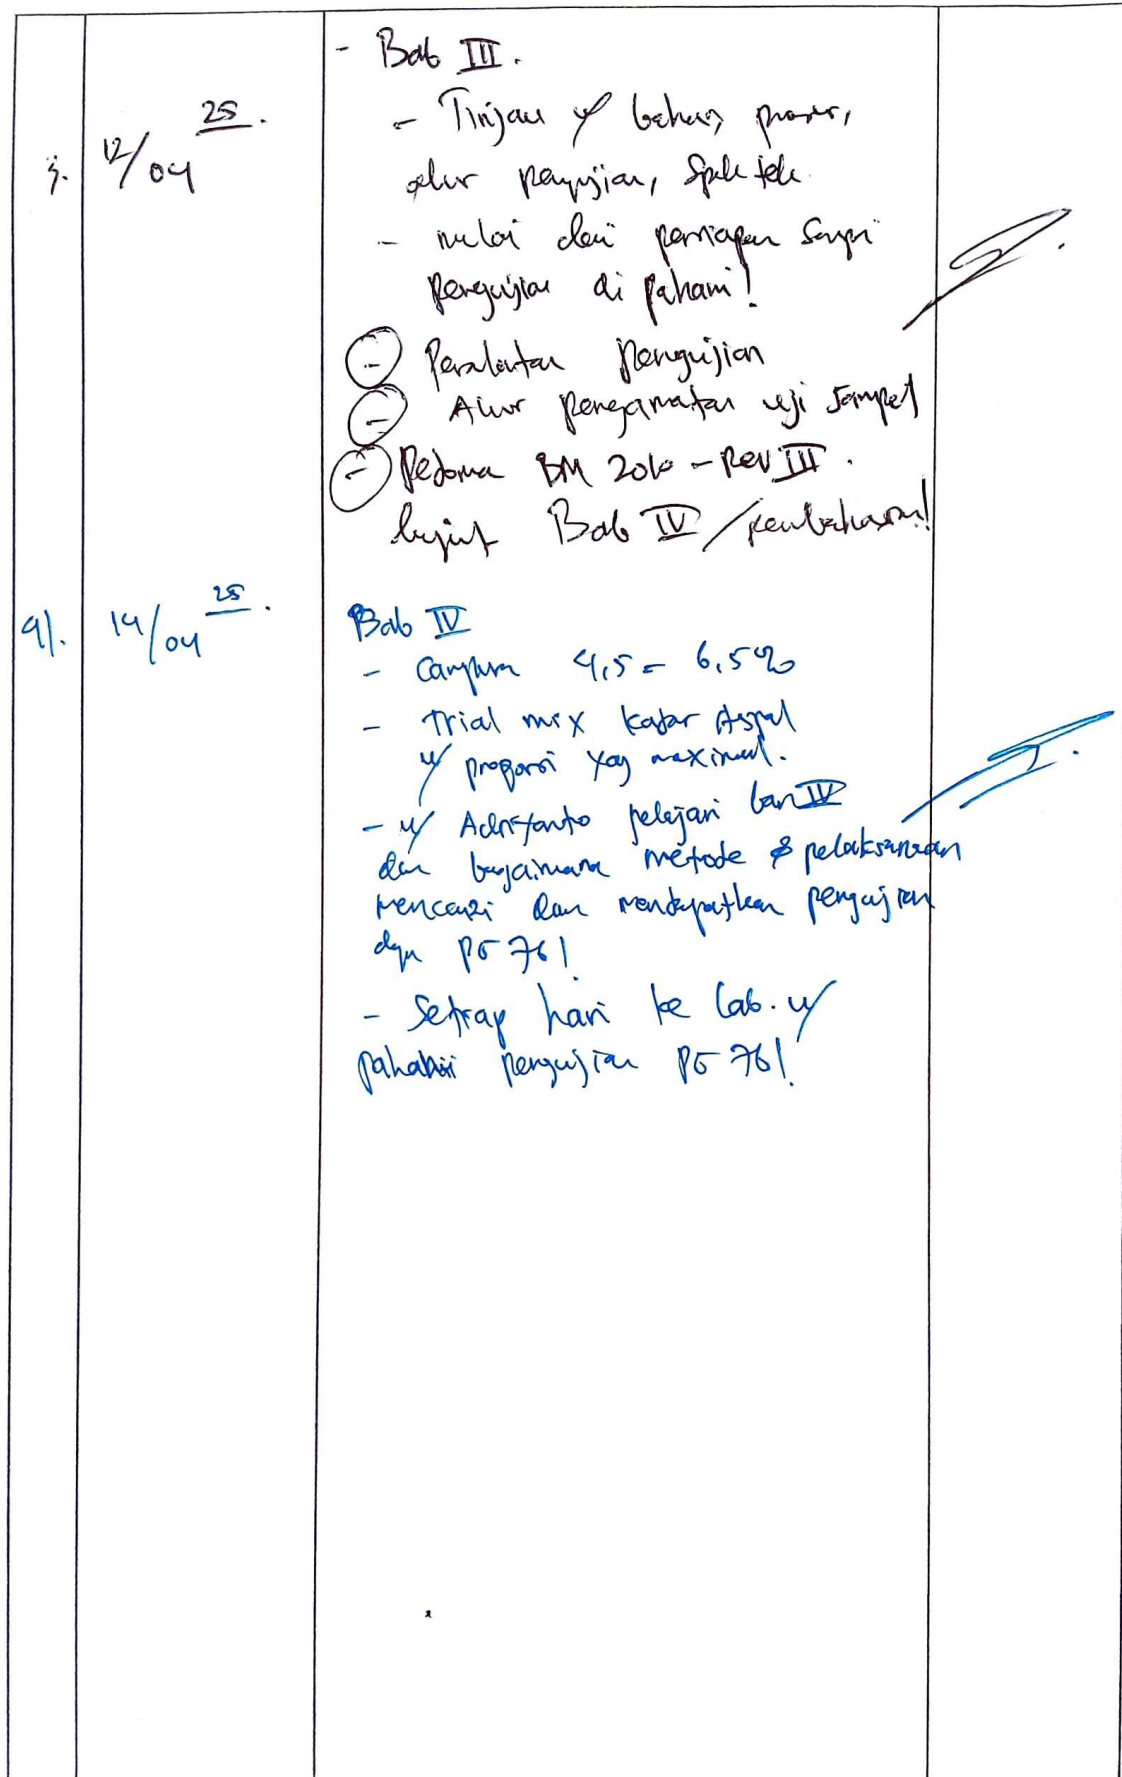 - Bab III.
3. 12/04 25.
- Tinjau u/ bahan, proses,
alur pengujian, Spek tek.
- mulai dari persiapan sampai
pengujian di pahami!
- Peralatan Pengujian
- Alur pengamatan uji sampel
- Pedoman BM 2010 - Rev III.
lanjut Bab IV / pembahasan!
4). 14/04 25.
Bab IV
- Campuran 4,5 - 6,5%
- Trial mix kadar Aspal
u/ proporsi yang maximal.
- u/ Adriyanto pelajari bab IV
dan bagaimana metode & pelaksanaan
mencari dan mendapatkan pengujian
dgn PG 76!
- Setiap hari ke Lab. u/
pahami pengujian PG 76!